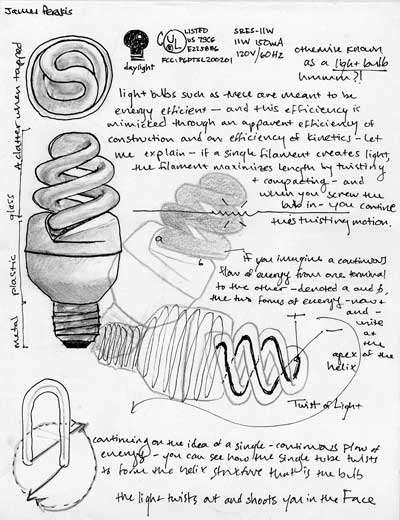 James Perakis
LISTED
US 29C6
E225886
FCC: PSDTZL200201
C UL
SRES-11W
11W 150mA
120V/60HZ
otherwise known
as a light bulb
hmmm?!
daylight
light bulbs such as these are meant to be
energy efficient - and this efficiency is
mimicked through an apparent efficiency of
construction and an efficiency of kinetics - let
me explain - if a single filament creates light,
the filament maximizes length by twisting
+ compacting - and
when you screw the
bulb in - you continue
this twisting motion.
A clatter when tapped
glass
plastic
metal
a
b
if you imagine a continuous
flow of energy from one terminal
to the other - denoted a and b,
the two forms of energy - now +
and -
unite
at
the
apex
of the
helix
+
-
Twist of Light
continuing on the idea of a single - continuous flow of
energy - you can see how the single tube twists
to form the helix structure that is the bulb
the light twists out and shoots you in the Face